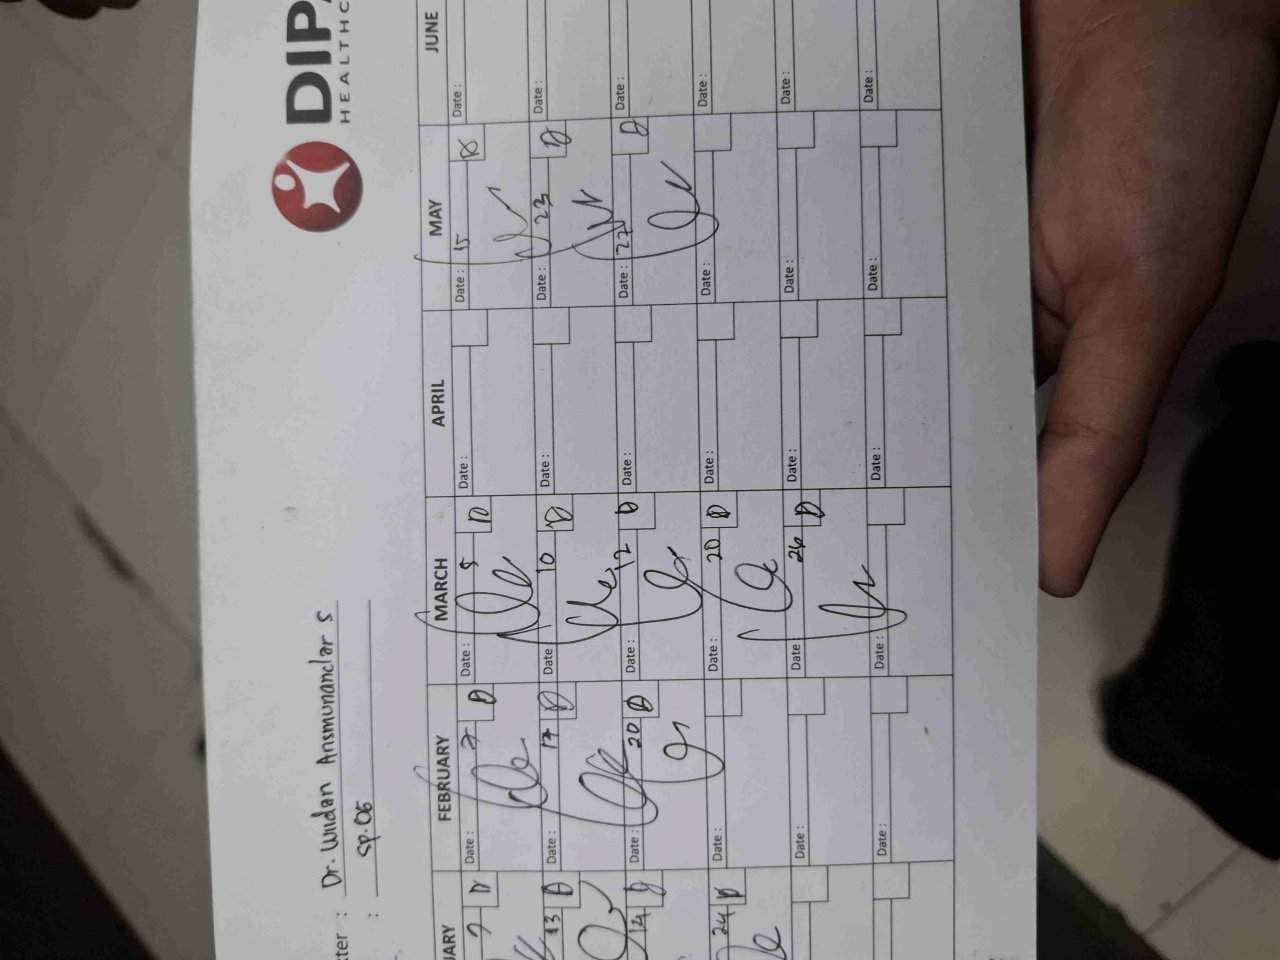 DIPA
HEALTHC
kter : Dr. Wildan Ansmunandar S
: Sp.OG
UARY FEBRUARY MARCH APRIL MAY JUNE
7 D Date : 7 D Date : 5 D Date : Date : 15 D Date :
13 D Date : 17 D Date : 10 D Date : Date : 23 D Date :
14 D Date : 20 D Date : 12 D Date : Date : 27 D Date :
24 D Date : Date : 20 D Date : Date : Date :
Date : Date : 26 D Date : Date : Date :
Date : Date : Date : Date : Date :